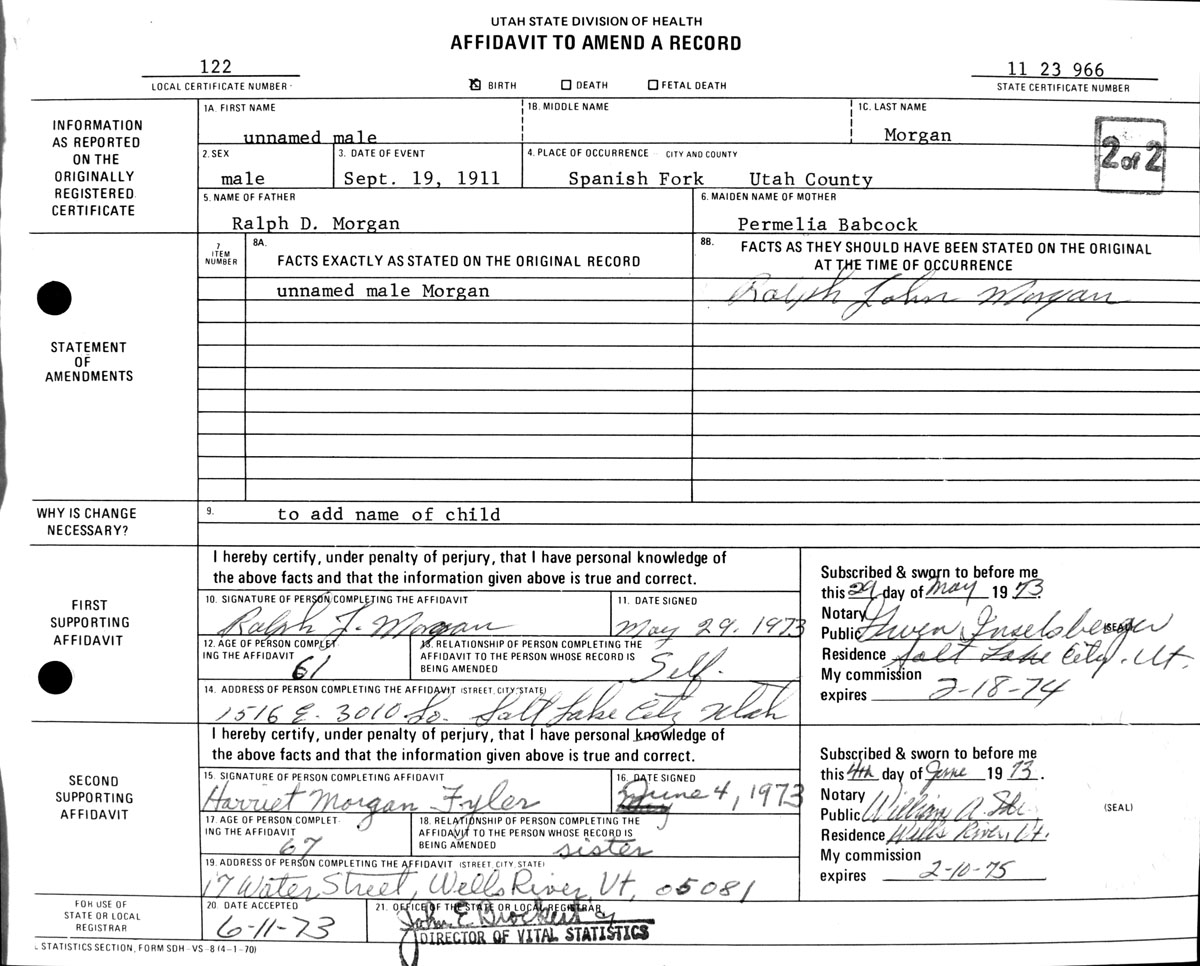 UTAH STATE DIVISION OF HEALTH
AFFIDAVIT TO AMEND A RECORD
122
LOCAL CERTIFICATE NUMBER
☒ BIRTH ☐ DEATH ☐ FETAL DEATH
11 23 966
STATE CERTIFICATE NUMBER
INFORMATION
AS REPORTED
ON THE
ORIGINALLY
REGISTERED
CERTIFICATE
1A. FIRST NAME 1B. MIDDLE NAME 1C. LAST NAME
unnamed male Morgan
2 of 2
2. SEX 3. DATE OF EVENT 4. PLACE OF OCCURRENCE – CITY AND COUNTY
male Sept. 19, 1911 Spanish Fork Utah County
5. NAME OF FATHER 6. MAIDEN NAME OF MOTHER
Ralph D. Morgan Permelia Babcock
STATEMENT
OF
AMENDMENTS
7
ITEM
NUMBER
8A.
FACTS EXACTLY AS STATED ON THE ORIGINAL RECORD
8B. FACTS AS THEY SHOULD HAVE BEEN STATED ON THE ORIGINAL
AT THE TIME OF OCCURRENCE
unnamed male Morgan Ralph John Morgan
WHY IS CHANGE
NECESSARY?
9. to add name of child
FIRST
SUPPORTING
AFFIDAVIT
I hereby certify, under penalty of perjury, that I have personal knowledge of
the above facts and that the information given above is true and correct.
10. SIGNATURE OF PERSON COMPLETING THE AFFIDAVIT 11. DATE SIGNED
Ralph J. Morgan May 29, 1973
12. AGE OF PERSON COMPLET-
ING THE AFFIDAVIT
61
13. RELATIONSHIP OF PERSON COMPLETING THE
AFFIDAVIT TO THE PERSON WHOSE RECORD IS
BEING AMENDED
Self.
14. ADDRESS OF PERSON COMPLETING THE AFFIDAVIT (STREET, CITY, STATE)
1516 E. 3010 So. Salt Lake City Utah
Subscribed & sworn to before me
this 29 day of May 1973.
Notary
Public Gwen Inselsberger (SEAL)
Residence Salt Lake City. Ut.
My commission
expires 2-18-74
SECOND
SUPPORTING
AFFIDAVIT
I hereby certify, under penalty of perjury, that I have personal knowledge of
the above facts and that the information given above is true and correct.
15. SIGNATURE OF PERSON COMPLETING AFFIDAVIT 16. DATE SIGNED
Harriet Morgan Fyler June 4, 1973
17. AGE OF PERSON COMPLET-
ING THE AFFIDAVIT
67
18. RELATIONSHIP OF PERSON COMPLETING THE
AFFIDAVIT TO THE PERSON WHOSE RECORD IS
BEING AMENDED
sister
19. ADDRESS OF PERSON COMPLETING THE AFFIDAVIT (STREET, CITY, STATE)
17 Water Street, Wells River, Vt. 05081
Subscribed & sworn to before me
this 4th day of June 1973.
Notary
Public William A.
(SEAL)
Residence Wells River, Vt.
My commission
expires 2-10-75
FOR USE OF
STATE OR LOCAL
REGISTRAR
20. DATE ACCEPTED
6-11-73
21. OFFICE OF THE STATE OR LOCAL REGISTRAR
John E. Brockert
DIRECTOR OF VITAL STATISTICS
STATISTICS SECTION, FORM SDH-VS-8 (4-1-70)